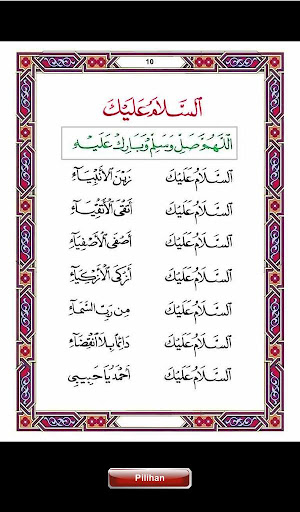 10
اَلسَّلَامُ عَلَيْكَ
اَللّٰهُمَّ صَلِّ وَسَلِّمْ وَبَارِكْ عَلَيْهِ
اَلسَّلَامُ عَلَيْكَ زَيْنَ الْأَنْبِيَاءِ
اَلسَّلَامُ عَلَيْكَ أَتْقَى الْأَتْقِيَاءِ
اَلسَّلَامُ عَلَيْكَ أَصْفَى الْأَصْفِيَاءِ
اَلسَّلَامُ عَلَيْكَ أَزْكَى الْأَزْكِيَاءِ
اَلسَّلَامُ عَلَيْكَ مِنْ رَبِّ السَّمَاءِ
اَلسَّلَامُ عَلَيْكَ دَائِمًا بِلَا انْقِضَاءِ
اَلسَّلَامُ عَلَيْكَ أَحْمَدُ يَا حَبِيْبِي
Pilihan